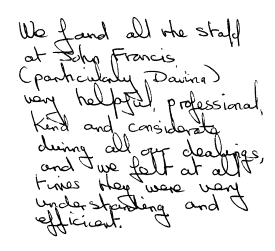 We found all the staff
at John Francis
(particularly Davina)
very helpful, professional,
kind and considerate
during all our dealings,
and we felt at all
times they were very
understanding and
efficient.